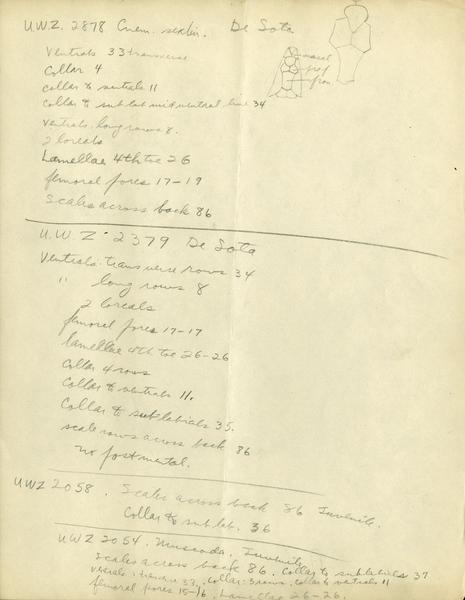 U.W.Z. 2878 Cnem. sexlin. De Soto
nasal
pref
fron
Ventrals 33 transverse
Collar 4
Collar to ventrals 11
Collar to sublab midventral line 34
Ventrals long rows 8.
2 loreals
Lamellae 4th toe 26
femoral pores 17-19
Scales across back 86
U.W.Z. 2379 De Soto
Ventrals transverse rows 34
" long rows 8
2 loreals
femoral pores 17-17
lamellae 4th toe 26-26
Collar 4 rows
Collar to ventrals 11.
Collar to sublabials 35.
scale rows across back 86
no postmental.
UWZ 2058. Scales across back 86 Juvenile.
Collar to sublab. 36
UWZ 2054. Muscoda. Juvenile
Scales across back 86. Collar to sublabials 37
ventrals: transverse 33. Collar: 3 rows. collar to ventrals 11
femoral pores 15-16. Lamellae 26-26.